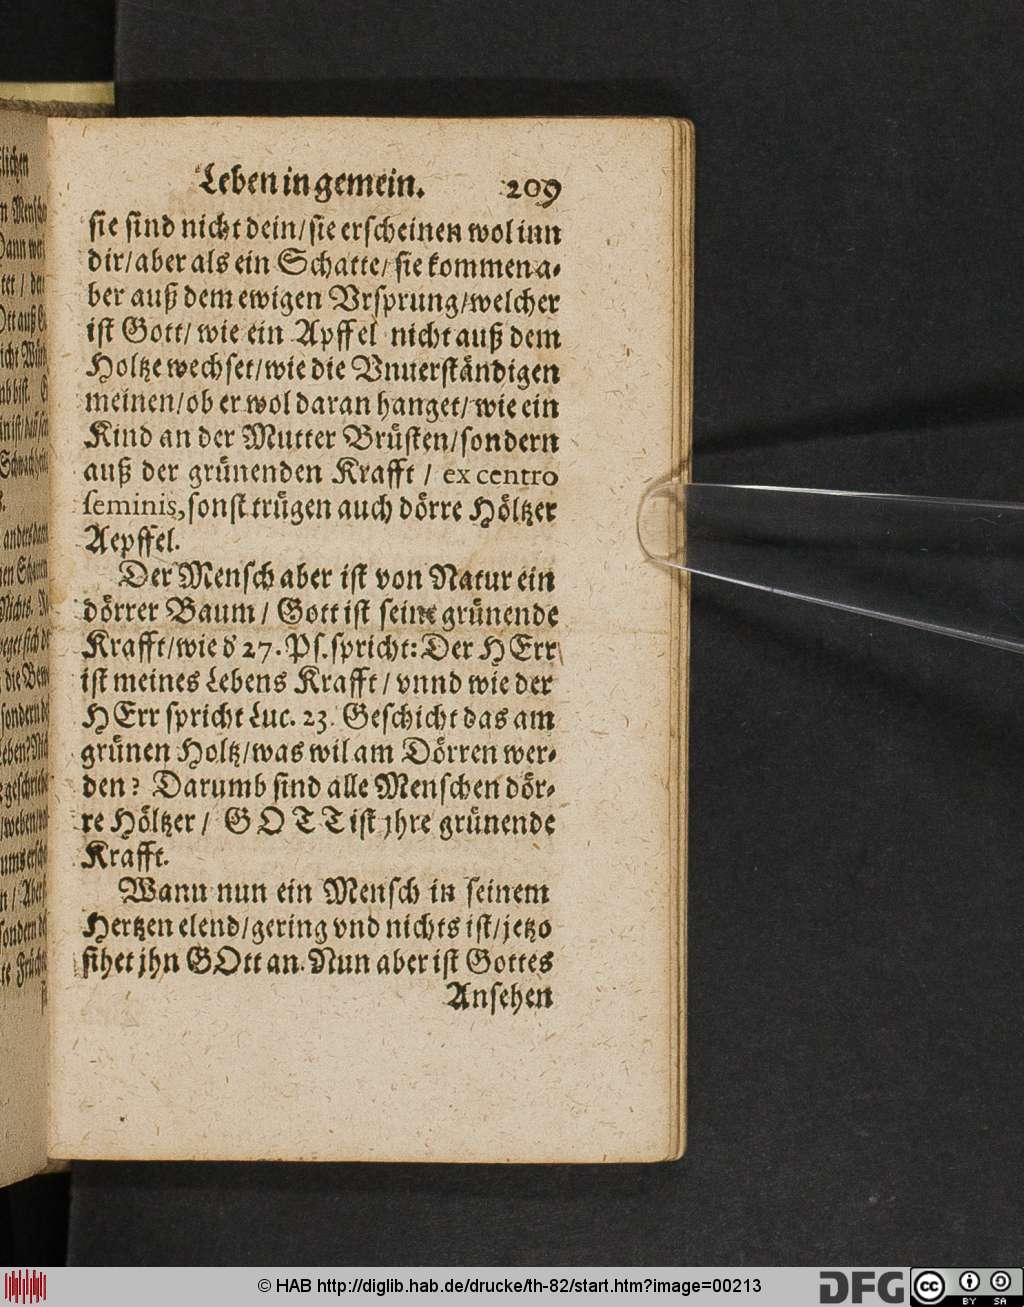 Leben in gemein. 209
sie sind nicht dein/ sie erscheinen wol inn
dir/ aber als ein Schatte/ sie kommen a-
ber auß dem ewigen Vrsprung/ welcher
ist Gott/ wie ein Apffel nicht auß dem
Holtze wechset/ wie die Vnuerständigen
meinen/ ob er wol daran hanget/ wie ein
Kind an der Mutter Brüsten/ sondern
auß der grünenden Krafft / ex centro
seminis, sonst trügen auch dörre Höltzer
Aepffel.
Der Mensch aber ist von Natur ein
dörrer Baum / Gott ist seine grünende
Krafft/ wie d' 27. Ps. spricht: Der HErr
ist meines Lebens Krafft / vnnd wie der
HErr spricht Luc. 23. Geschicht das am
grünen Holtz/ was wil am Dörren wer-
den? Darumb sind alle Menschen dör-
re Höltzer / GOTT ist jhre grünende
Krafft.
Wann nun ein Mensch in seinem
Hertzen elend/ gering vnd nichts ist/ jetzo
sihet jhn GOtt an. Nun aber ist Gottes
Ansehen
© HAB http://diglib.hab.de/drucke/th-82/start.htm?image=00213
DFG
cc
BY SA